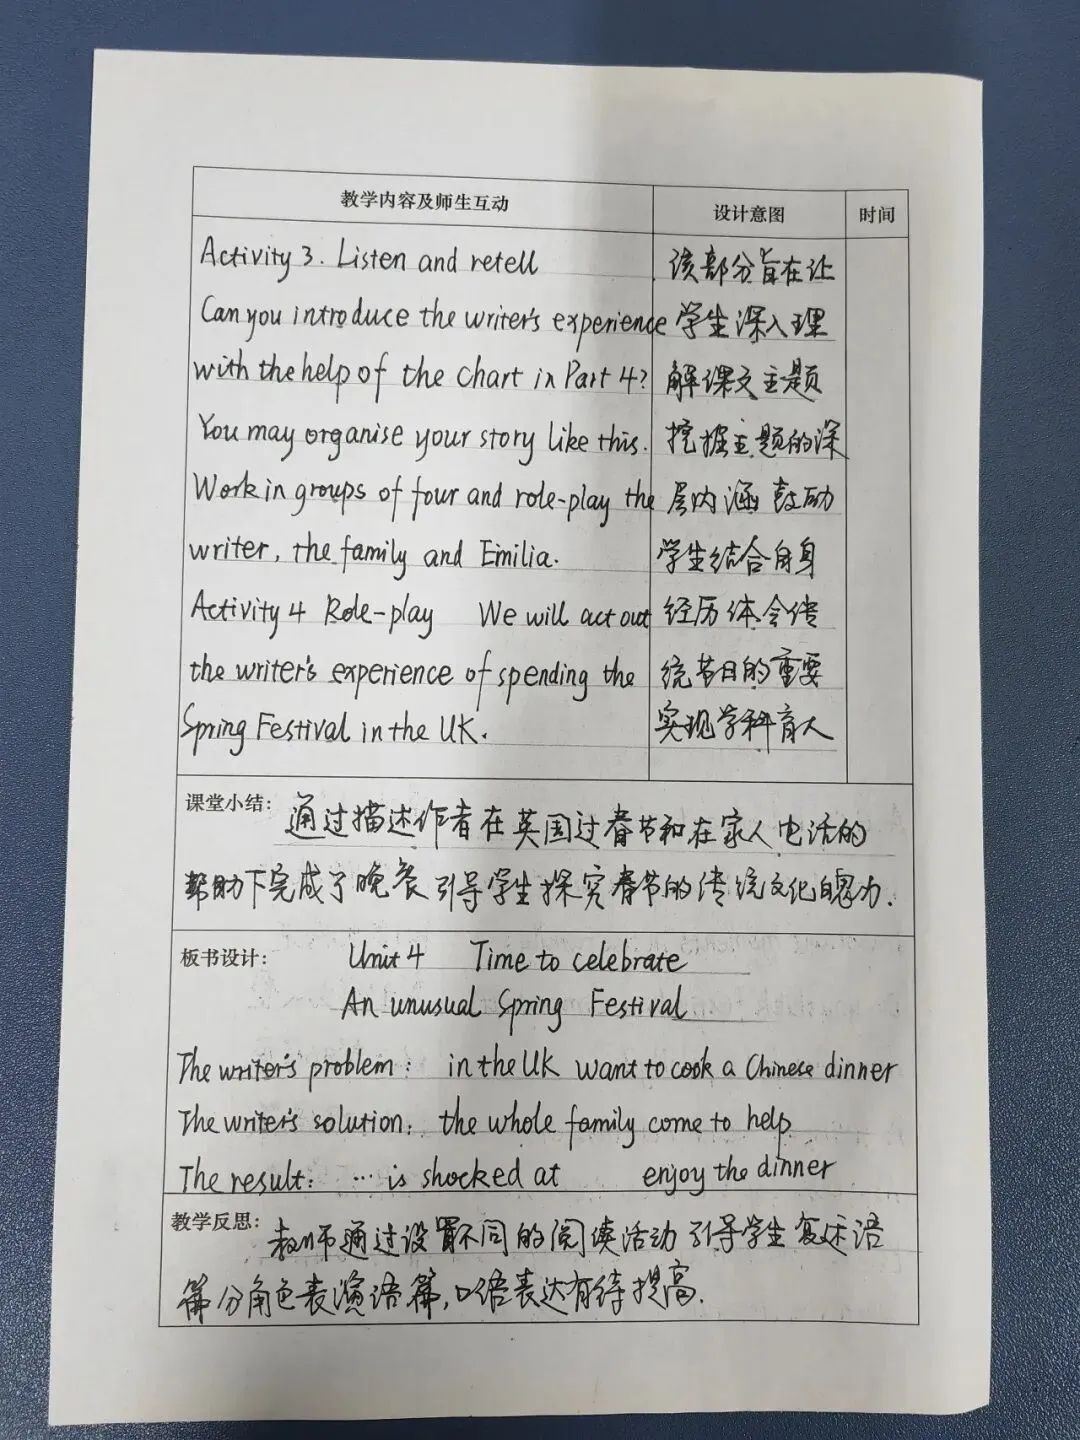 教学内容及师生互动 设计意图 时间
Activity 3. Listen and retell 该部分旨在让
Can you introduce the writer's experience 学生深入理
with the help of the chart in Part 4? 解课文主题
You may organise your story like this. 挖掘主题的深
Work in groups of four and role-play the 层内涵 鼓励
writer, the family and Emilia. 学生结合自身
Activity 4 Role-play We will act out 经历体会传
the writer's experience of spending the 统节日的重要
Spring Festival in the UK. 实现学科育人
课堂小结: 通过描述作者在英国过春节和在家人电话的
帮助下完成了晚餐 引导学生探究春节的传统文化魄力.
板书设计: Unit 4 Time to celebrate
An unusual Spring Festival
The writer's problem: in the UK want to cook a Chinese dinner
The writer's solution: the whole family come to help
The result: … is shocked at enjoy the dinner
教学反思: 教师通过设置不同的阅读活动 引导学生复述语
篇 分角色表演语篇, 口语表达有待提高.